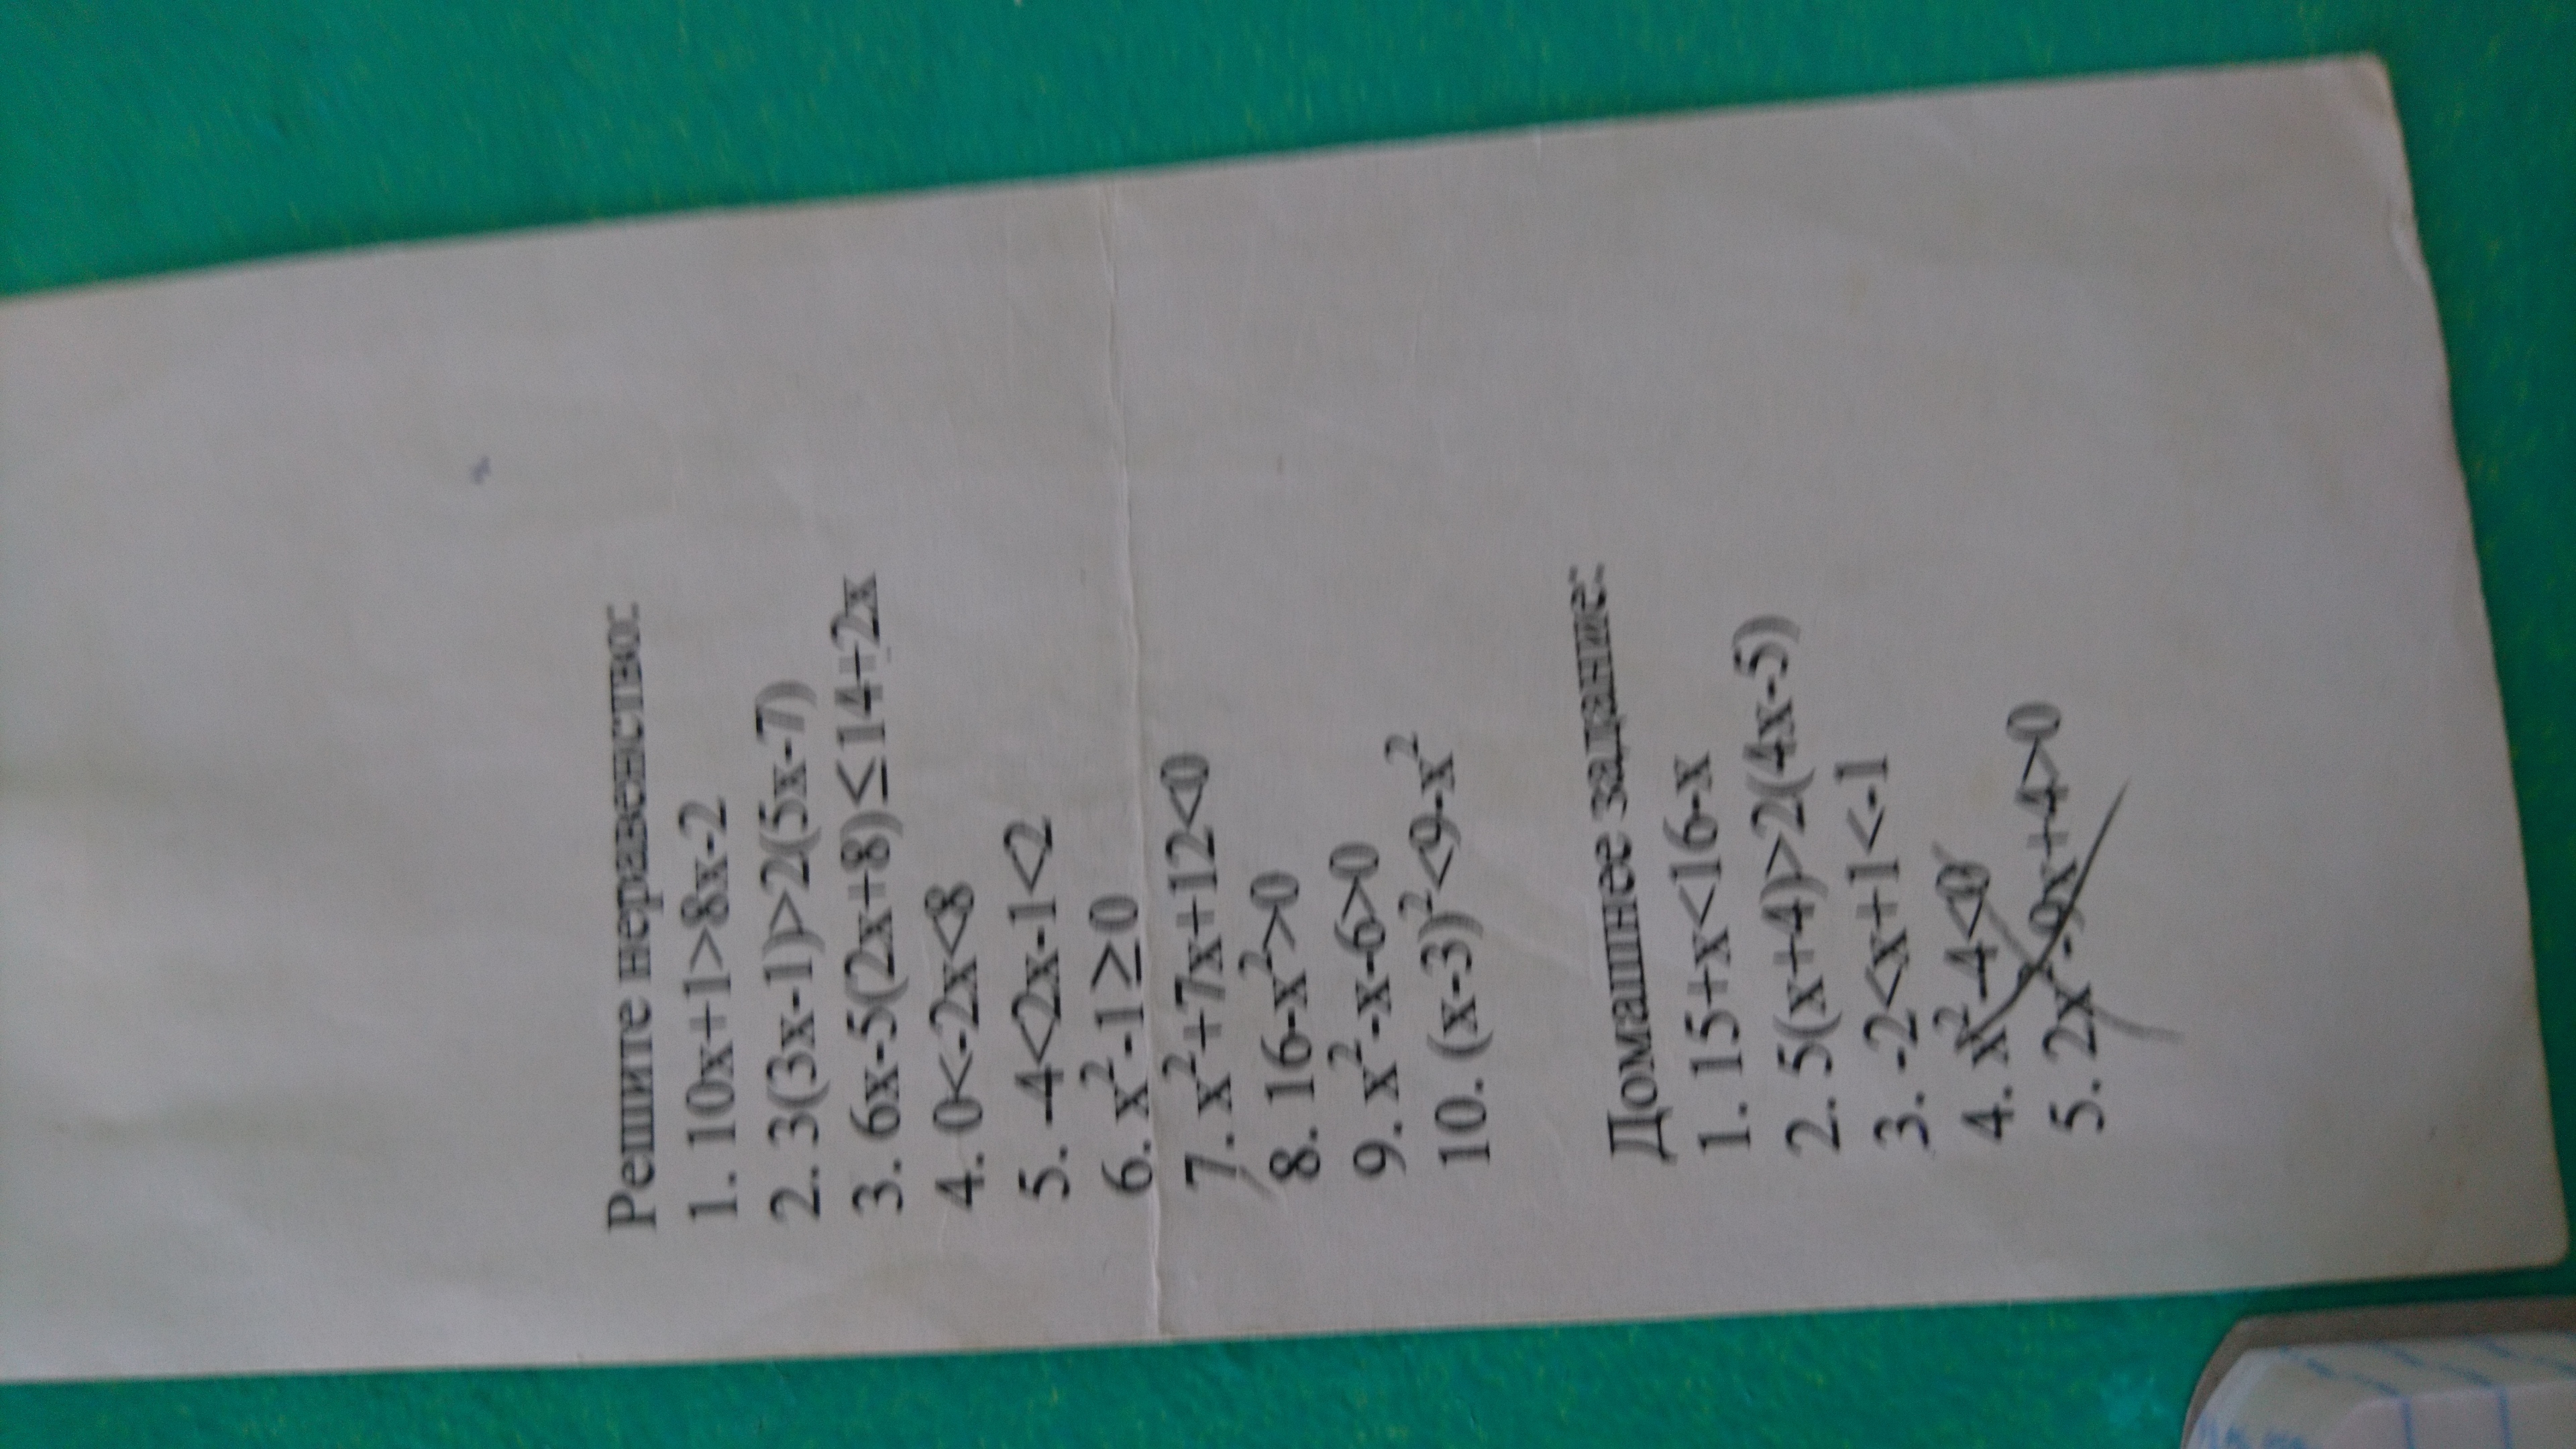 Решите неравенство:
1. 10x+1>8x-2
2. 3(3x-1)>2(5x-7)
3. 6x-5(2x+8)≤14+2x
4. 0<-2x<8
5. -4<2x-1<2
6. x²-1≥0
7. x²+7x+12<0
8. 16-x²>0
9. x²-x-6>0
10. (x-3)²<9-x²
Домашнее задание:
1. 15+x<16-x
2. 5(x+4)>2(4x-5)
3. -2<x+1<-1
4. x²-4<0
5. 2x²-9x+4>0